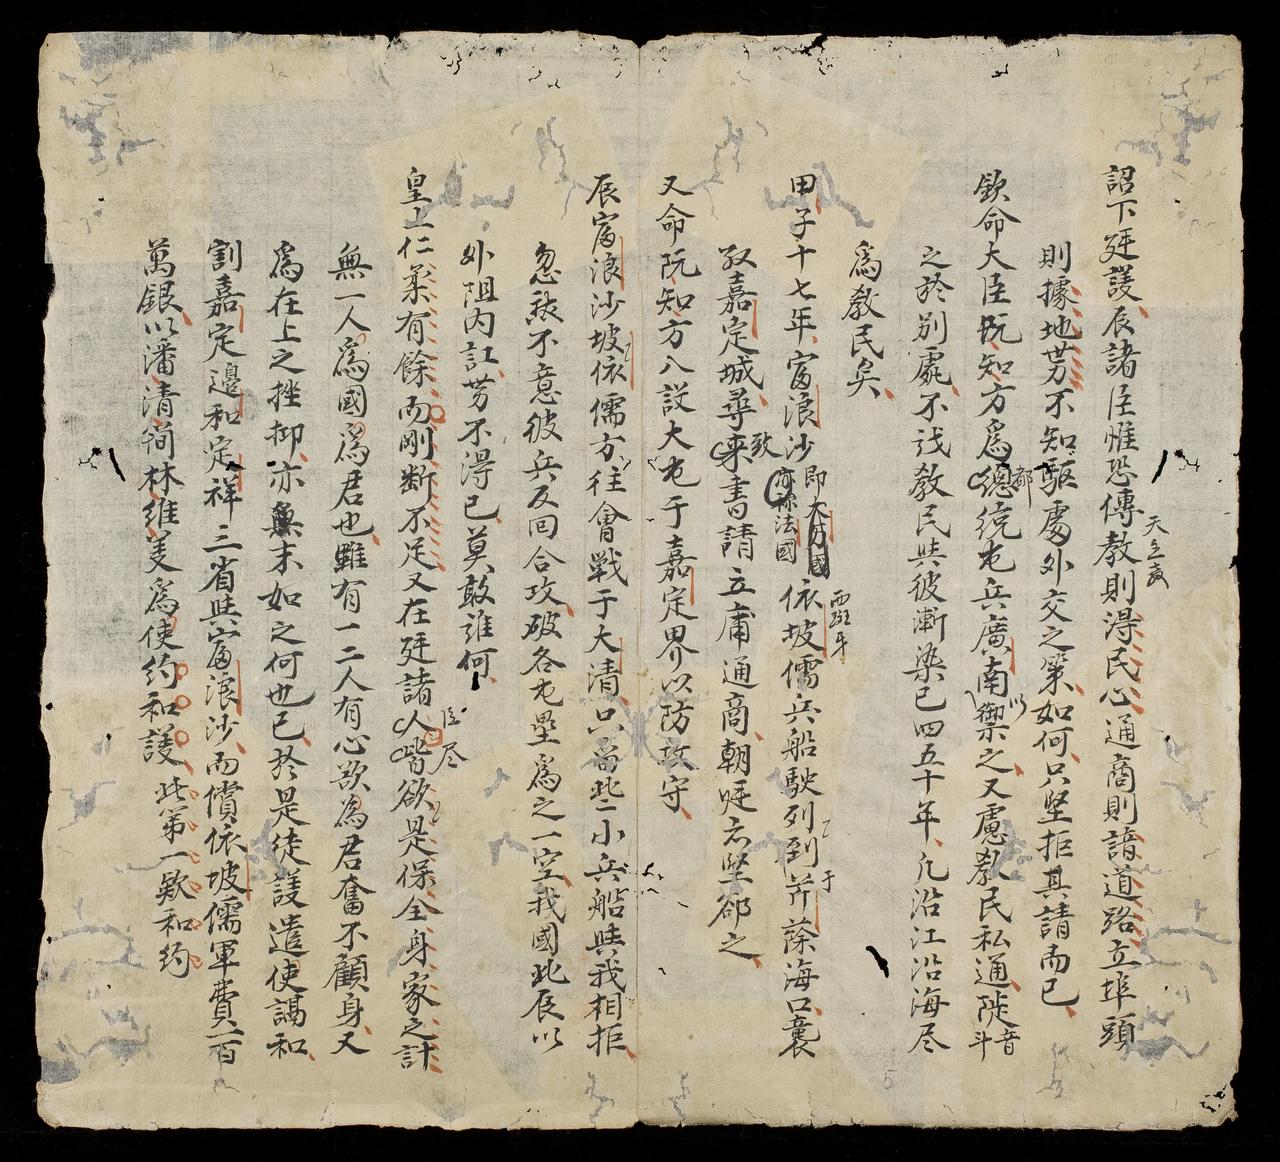 詔下廷議辰諸臣惟恐傳教則得民心通商則諳道路立埠頭
天主教
則據地勢不知驅處外交之策如何只堅拒其請而已
欽命大臣阮知方爲總統屯兵廣南禦之又慮教民私通陡音斗
都
以
之於別處不戢教民與彼漸染已四五十年凡沿江沿海尽
爲教民矣
甲子十七年富浪沙即大方國亦称法國依坡儒兵船駛列到芹蒢海口襲
西班牙
于
取嘉定城尋来書請立庸通商朝廷亦堅郤之
致
又命阮知方八設大屯于嘉定界以防敌守
辰富浪沙坡依儒方往會戰于大清只留此一小兵船與我相拒
忽然不意彼兵反回合攻破各屯壘爲之一空我國此辰以
外阻内訌势不得已莫敢誰何
皇上仁柔有餘而剛断不足又在廷諸人皆欲是保全身家之計
臣尽
無一人爲國爲君也雖有一二人有心欲為君奮不顧身又
爲在上之挫抑亦無末如之何也已於是徒議遣使講和
割嘉定邊和定祥三省與富浪沙而償依坡儒軍費一百
萬銀以潘清簡林維㕠爲使約和議此第一欵和約